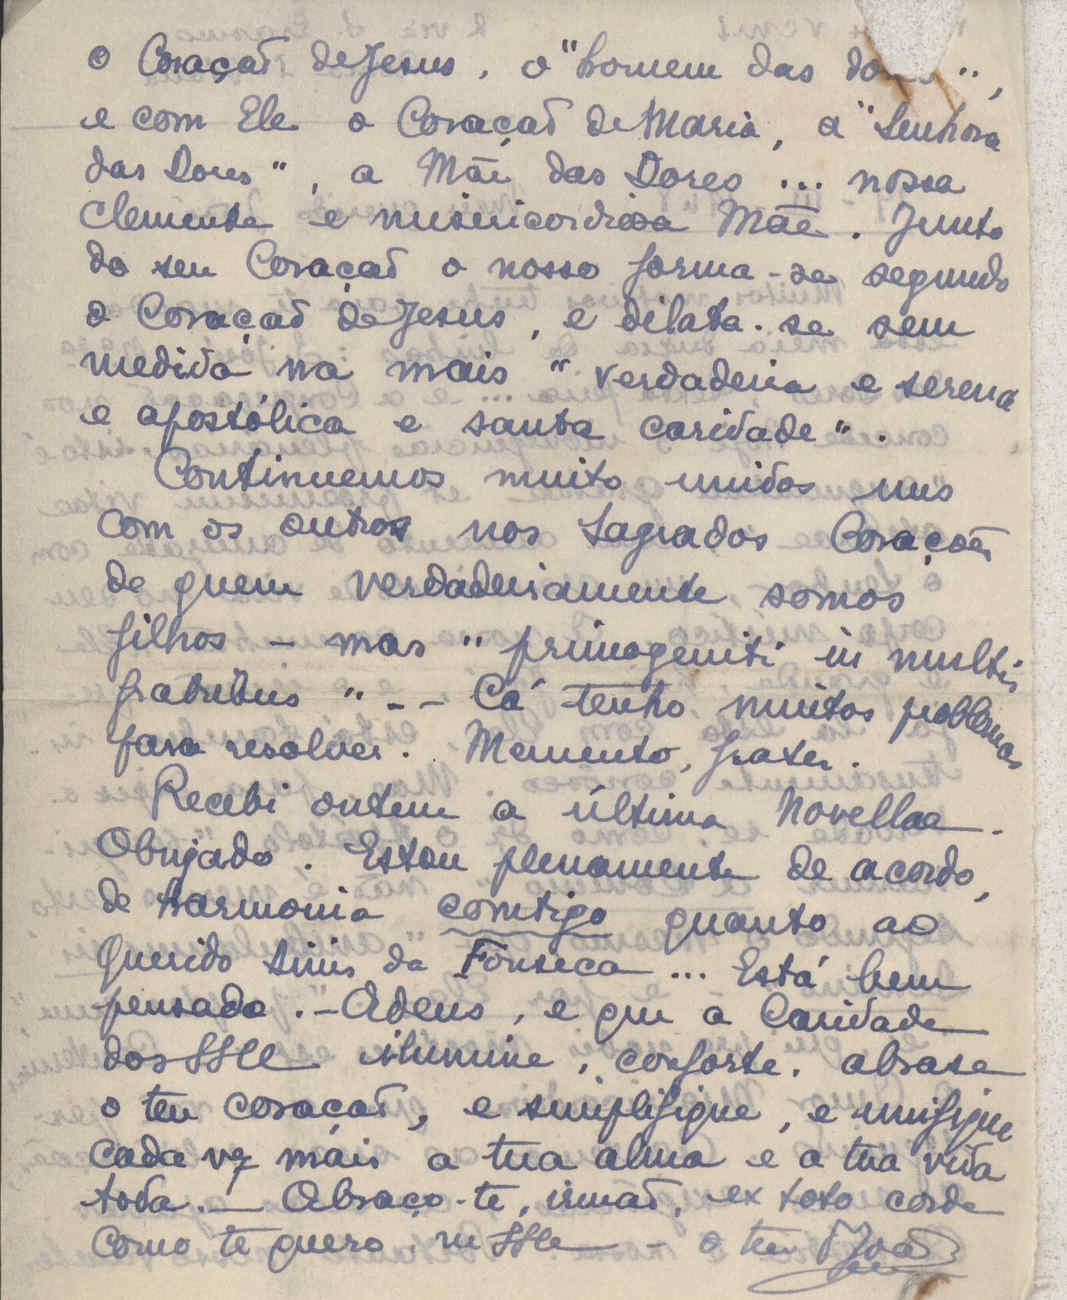 o Coração de Jesus, o "homem das dores",
e com Ele o Coração de Maria, a "Senhora
das Dores", a Mãe das Dores ... nossa
clemente e misericordiosa Mãe. Junto
do seu Coração o nosso forma-se segundo
o Coração de Jesus, e dilata-se sem
medida na mais "verdadeira e serena
e apostólica e santa caridade".
Continuemos muito unidos uns
com os outros nos Sagrados Corações
de quem verdadeiramente somos
filhos - mas "primogeniti in multis
fratribus" -- Cá tenho muitos problemas
para resolver. Memento, frater.
Recebi ontem a última Novellae.
Obrigado. Estou plenamente de acordo,
de harmonia comtigo quanto ao
Querido da Fonseca ... Está bem
pensado. - Adeus, e que a Caridade
dos SSCC ilumine, conforte, abrase
o teu coração, e simplifique, e unifique
cada vez mais a tua alma e a tua vida
toda. — Abraço-te, irmão, ex toto corde
como te quero, in SSCC - o teu João